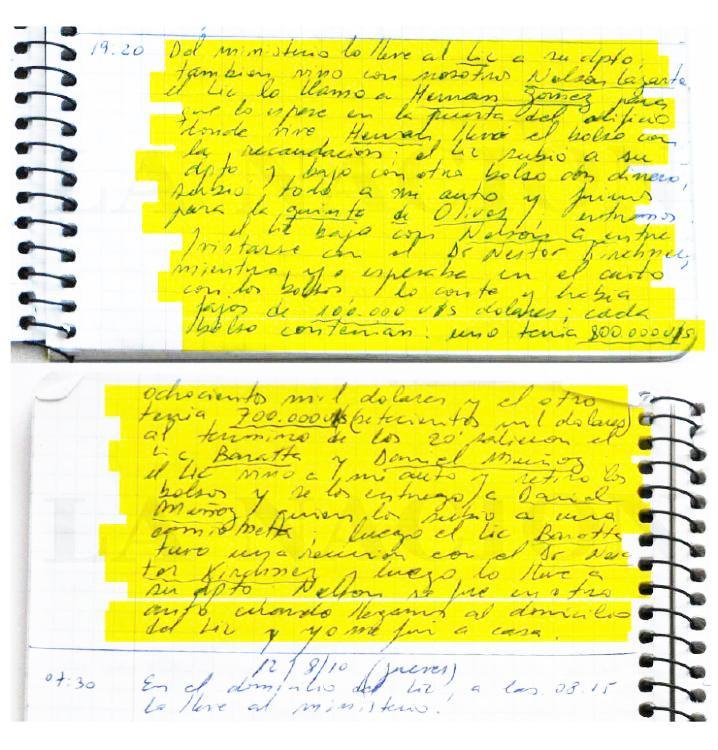 19:20 Del ministerio lo lleve al Lic a su dpto,
tambien vino con nosotros Nelson Lazarte
el Lic lo llamo a Hernan Gomez para
que lo espere en la puerta del edificio
donde vive Hernan llevó el bolso con
la recaudacion; el Lic subió a su
dpto y bajo con otro bolso con dinero,
subió todo a mi auto y fuimos
para la quinta de Olivos, entramos
y el Lic bajo con Nelson a entre
vistarse con el Dr Nestor Kirchner,
mientras yo esperaba en el auto
con los bolsos, lo conte y habia
fajos de 100.000 u$s dolares; cada
bolso contenian: uno tenia 800.000 u$s
ochocientos mil dolares y el otro
tenia 700.000 u$s (setecientos mil dolares)
al termino de los 20' salieron el
Lic Baratta y Daniel Muñoz
el Lic vino a mi auto y retiro los
bolsos y se los entrego a Daniel
Muñoz, quien los subio a una
camioneta; luego el Lic Baratta
tuvo una reunion con el Dr Nes
tor Kirchner y luego lo lleve a
su dpto Nelson se fue en otro
auto cuando llegamos al domicilio
del Lic y yo me fui a casa.
12/8/10 (jueves)
07:30 En el domicilio del Lic, a las 08:15
lo lleve al ministerio.
LA NACION
LA NACION